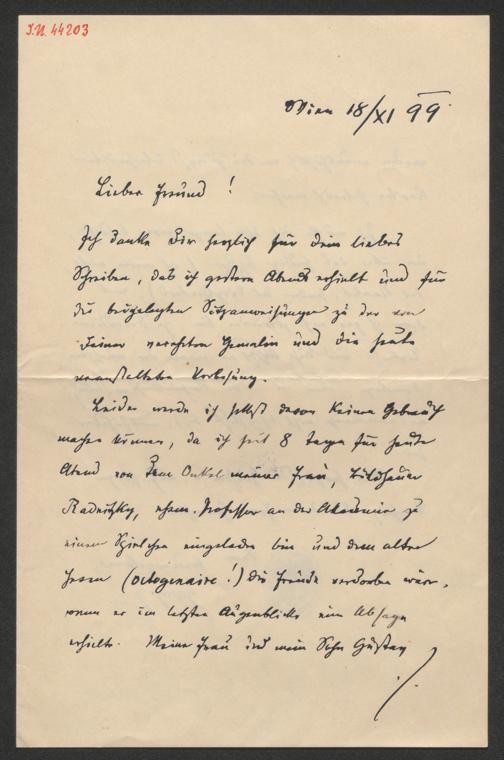 I.N. 44203
Wien 18/XI 99.
Lieber Freund!
Ich danke Dir herzlich für Dein liebes
Schreiben, das ich gestern Abends erhielt und für
die beigelegten Sitzanweisungen zu der von
Deiner verehrten Gemalin und Dir heute
veranstalteten Vorlesung.
Leider werde ich selbst davon keinen Gebrauch
machen können, da ich seit 8 Tagen für heute
Abend von dem Onkel meiner Frau, Bildhauer
Radnitzky, ehem. Professor an der Akademie zu
einem Spielchen eingeladen bin und dem alten
Herrn (octogenaire!) die Freude verdorben wäre,
wenn er im letzten Augenblicke eine Absage
erhielte. Meine Frau und mein Sohn Gustav
./.